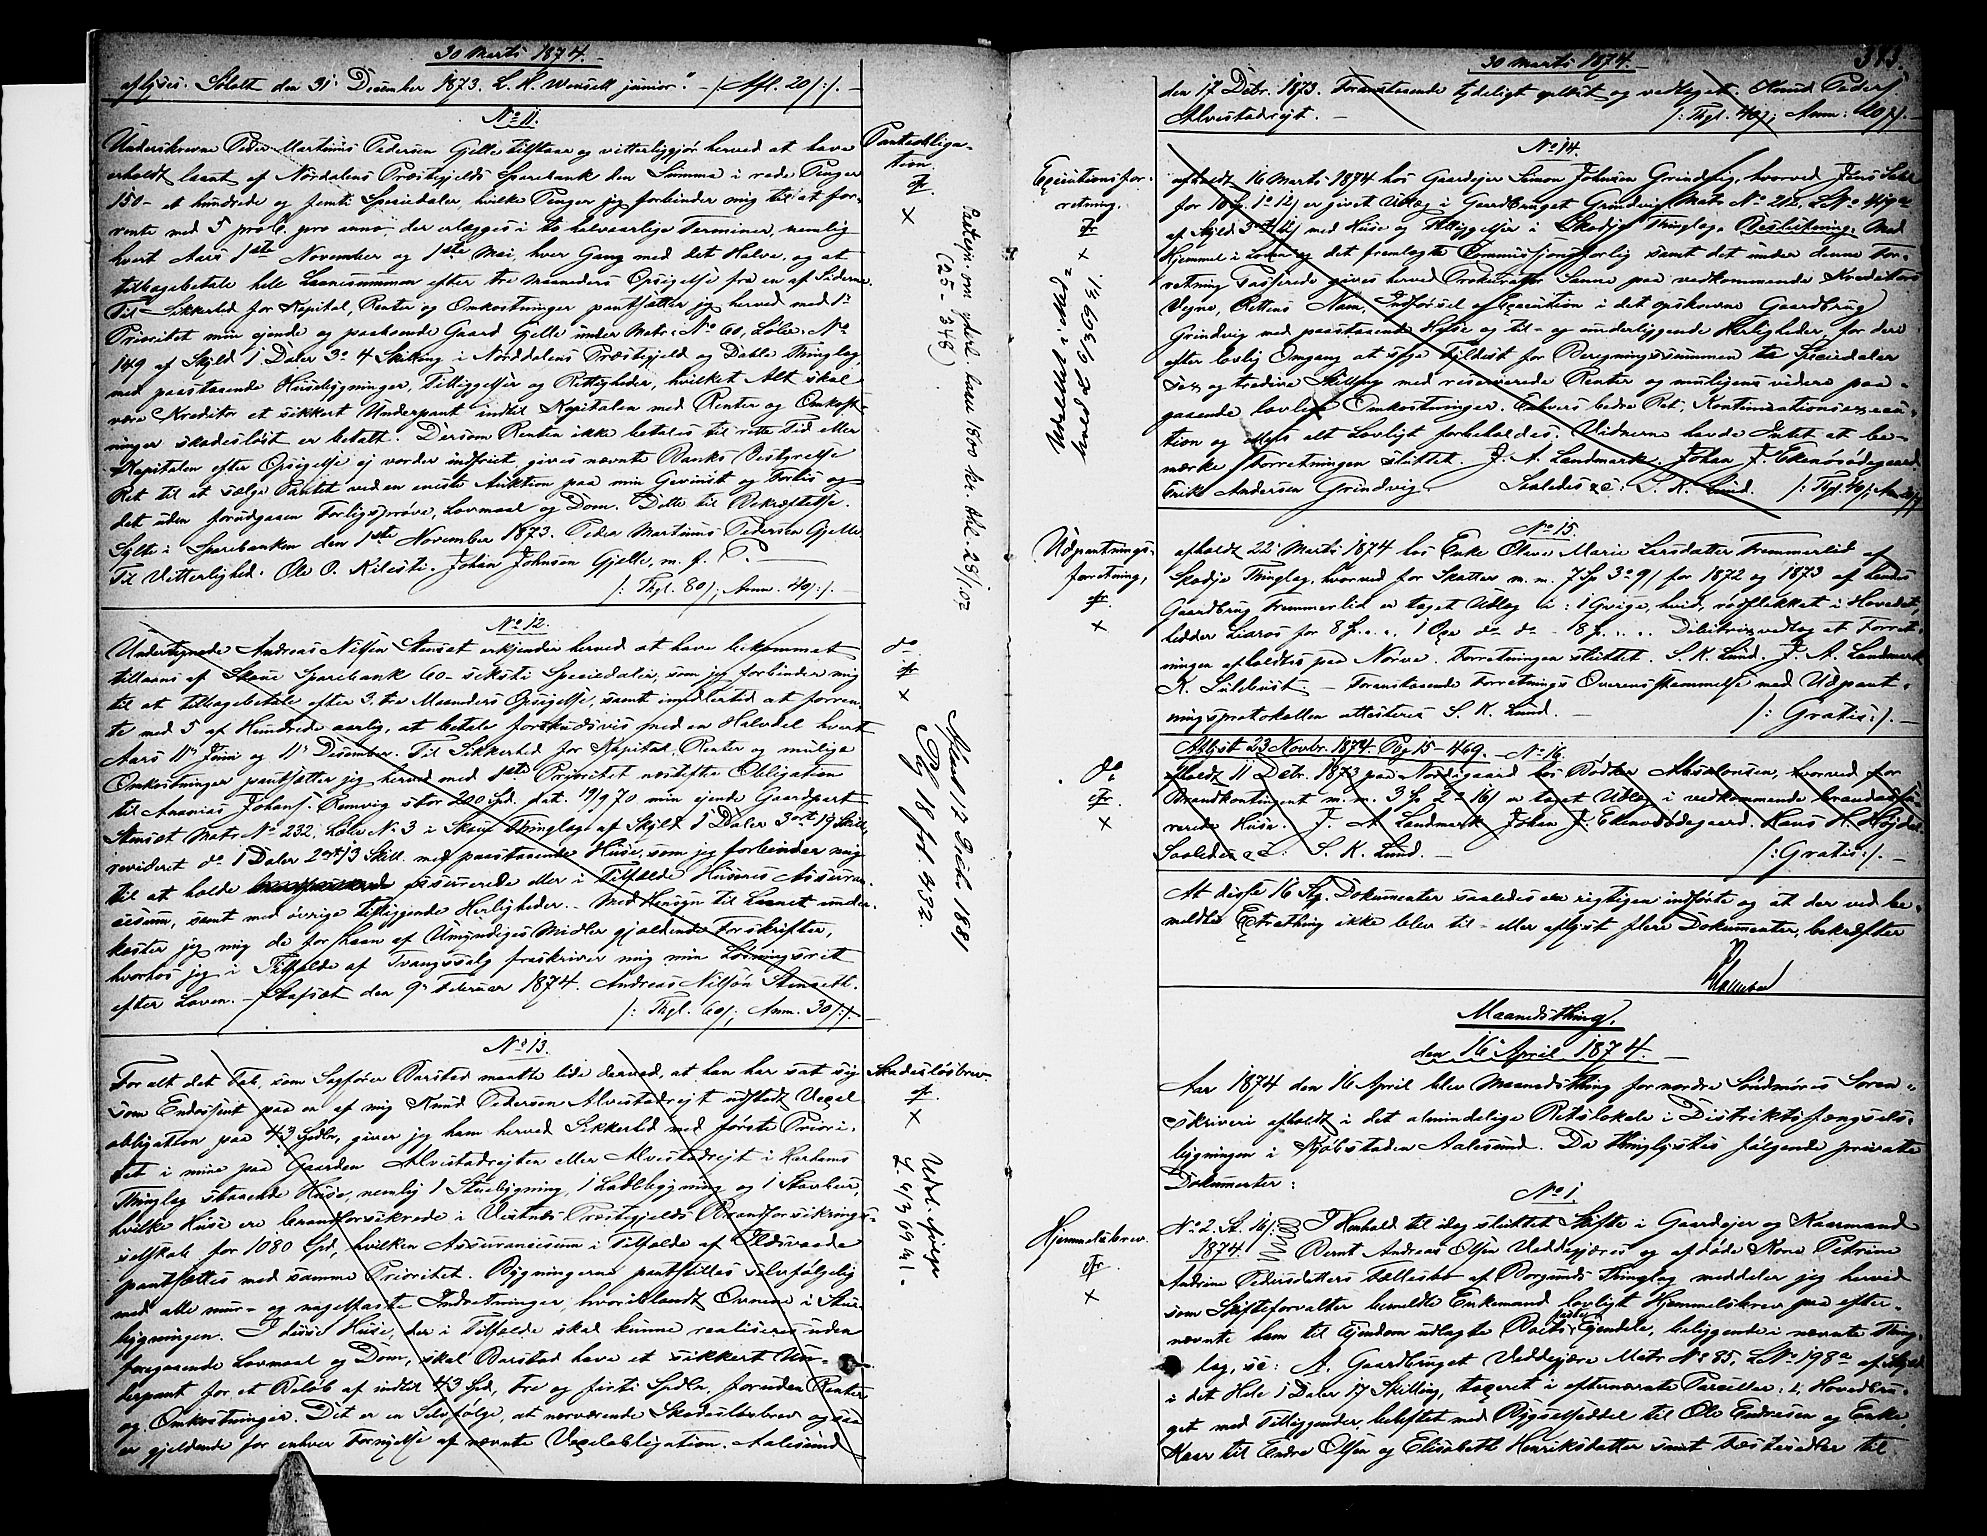 30 Marts 1874.
aflyses. Sololt den 31 December 1873. L. K. Wensell junior." - /: Afl. 20/:/. -
No 11.
Pantobligation.
Underskrevne Peder Martinus Pedersen Gjelle tilstaar og vitterliggjør herved at have
erholdt laant af Nordalens Præstegjelds Sparebank den Summa i rede Penger
150 - et hundrede og femti Speciedaler, hvilke Penger jeg forbinder mig til at for-
rente med 5 pro C. pro anno, der erlægges i to halvaarlige Terminer, nemlig
hvert Aars 1ste November og 1ste Mai, hver Gang med det Halve, og at
tilbagebetale hele Laanesummen efter tre Maaneders Opsigelse fra en af Siderne.
Til Sikkerhed for Kapital, Renter og Omkostninger pantsætter jeg herved med 1ste
Prioritet min eiende og paaboende Gaard Gjelle under Matr. No 60, Løbe No
149 af Skyld 1 Daler 3 o 4 Skilling i Norddalens Præstegjeld og Dahle Thinglag,
med paastaaende Husebygninger, Tilliggelser og Rettigheder, hvilket Alt skal
være Kreditor et sikkert Underpant indtil Kapitalen med Renter og Omkost-
ninger skadesløst er betalt. Dersom Renten ikke betales til rette Tid eller
Kapitalen efter Opsigelse ej vorder indfriet, gives nævnte Banks Bestyrelse
Ret til at sælge Pantet ved en eneste Auktion paa min Gevinst og Forlis og
det uden forudgaaen Forligsprøve, Lovmaal og Dom. Dette til Bekræftelse.
Sylte i Sparebanken den 1ste November 1873. Peder Martinus Pedersen Gjelle
Til Vitterlighed. Ole O. Kilsti. Johan Johnsen Gjelle, m. f. P.
/: Thgl. 80/; Anm. 40/:/. -
(25 - 348)
No 12.
Undertegnede Andreas Nilsen Stenset erkjender herved at have bekommet
tillaans af Skaue Sparebank 60 - seksti Speciedaler, som jeg forbinder mig
til at tilbagebetale efter 3. tre Maaneders Opsigelse, samt imidlertid at forren-
te med 5 af Hundrede aarlig, at betale forskudsvis med en Halvdel hvert
Aars 11te Juni og 11te December. Til Sikkerhed for Kapital, Renter og mulige
Omkostninger pantsætter jeg herved med 1ste Prioritet næstefter Obligation
til Ananias Johans. Remvig stor 200 Spd. dat. 19/9 70 min eiende Gaardpart
Stenset Matr No 232. Løbe No 3 i Skaue Thinglag af Skyld 1 Daler 3 ort 19 Skill,
revideret do 1 Daler 2 ort 13 Skill. med paastaaende Huse, som jeg forbinder mig
til at holde assurerede eller i Tilfælde Husenes Assuran-
cesum, samt med øvrige tilliggende Herligheder. - Med Hensyn til Laanet under-
kaster jeg mig de for Laan af Umyndiges Midler gjældende Forskrifter,
hvorhos jeg i Tilfælde af Tvangssalg fraskriver mig min Løsningsret
efter Loven. - Stafset den 9 Februar 1874. Andreas Nilsen Stenseth.
/: Thgl. 60/; Anm. 30/:/.
Aflæst 12 Decbr 1881
Pag 18 fol. 932.
No 13.
Skadesløsbrev.
For alt det Tab, som Sagfører Barstad maatte lide derved, at han har sat sig
som Endossent paa en af mig Knud Pedersen Alvestadrejt udstedt Vexel
obligation paa 43 Spdlr, giver jeg ham herved Sikkerhed med første Priori-
tet i mine paa Gaarden Alvestadrejten eller Alvestadrejt i Harhams
Thinglag staaende Huse, nemlig 1 Stuebygning, 1 Ladebygning og 1 Stavbur,
hvilke Huse ere brandforsikrede i Vestnæs Præstegjelds Brandforsikrings-
selskab for 1080 Spd, hvilken Assurancesum i Tilfælde af Ildsvaade
pantsættes med samme Prioritet. Bygningerne pantsættes selvfølgelig
med alle mur- og nagelfaste Indretninger, hvoriblandt Ovnene i Stue-
bygningen. I disse Huse, der i Tilfælde skal kunne realiseres uden
foregaaende Lovmaal og Dom, skal Barstad have et sikkert Un-
derpant for et Beløb af indtil 43 Spd, tre og firti Spdlr, foruden Renter
og Omkostninger. Det er en Selvfølge, at nærværende Skadesløsbrev ogsaa
er gjeldende for enhver Fornyelse af nævnte Vexelobligation. Aalesund
30 Marts 1874.
383.
den 17 Debr. 1873. Foranstaaende tydeligt oplæst og vedtaget. Knud Peders.
Alvestadrejt. - /: Thgl. 40/; Anm: 20/:/. -
No 14.
Executionsfor-
retning.
afholdt 16 Marts 1874 hos Gaardejer Simon Johnsen Grindvig, hvorved Jens
for 10 Sp. 1 o 12/ er givet Udlæg i Gaardbruget Grindvig Matr No 212, L No
af Skyld med Huse og Tilliggelser i Skodje Thinglag. Beslutning: Med
Hjemmel i Loven og det fremlagte Commissionsforlig samt det under denne For-
retning Passerede gives herved Prokurator Sanne paa vedkommende Kreditors
Vegne, Rettens Navn, Indførsel og Execution i det opskrevne Gaardbrug
Grindvig med paastaaende Huse og til- og underliggende Herligheder, for deri
efter lovlig Omgang at søge Fyldest for Beregningssummen Speciedaler
og tredive Skilling med reserverede Renter og muligens videre paa-
gaaende lovlige Omkostninger. Enhvers bedre Ret, Kontinuationsexecu-
tion og ellers alt Lovligt forbeholdes. Vidnerne havde Intet at be-
mærke. Forretningen sluttet. J. A. Landmark. Johan J. Ekenæsødegaard
Erik Andersen Grindvig. Saaledes S. K. Lund. /: Thgl 40/; Anm 20/:/
No 15.
Udpantnings-
forretning,
afholdt 22 Marts 1874 hos Enke Olive Marie Larsdatter Frommerlid af
Skodje Thinglag, hvorved for Skatter m. m. 7 Sp 3 o 9/ for 1872 og 1873 af hendes
Gaardbrug Frommerlid er taget Udlæg i: 1 Qvige, hvid, rødflekket i Hovedet,
hedder Liaros for 8 Sp. 1 Oxe do do - 8 Sp. Debitrix vedtog at Forret-
ningen afholdtes paa Nørve. Forretningen sluttet. S. K. Lund. J. A. Landmark
K. Lillebust - Foranstaaende Forretnings Overensstemmelse med Udpant-
ningsprotokollen attesteres S. K. Lund. - /: Gratis:/. -
Aflyst 23 Novbr. 1874. Pag 15 - 469. - No 16.
do
afholdt 11 Debr. 1873 paa Nordigaard hos Bødker Absalonsen, hvorved for
Brandkontingent m. m. 3 Sp 2 o 16/ er taget Udlæg i vedkommende brandassu-
rerede Huse. J. A Landmark Johan J. Ekenæsødegaard. Hans H. Højdal.
Saaledes S. K. Lund. - /: Gratis:/. -
At disse 16 Stg. Dokumenter saaledes ere rigtigen indførte og at der ved be-
meldte Extrathing ikke blev til- eller aflyst flere Dokumenter, bekræfter
Maanedsthing,
den 16 April 1874. -
Aar 1874 den 16 April blev Maanedsthing for nordre Søndmøres Soren-
skriveri afholdt i det almindelige Retslokale i Distriktsfængsels-
bygningen i Kjøbstaden Aalesund. Da thinglystes følgende private
Dokumenter:
No 1.
Hjemmelsbrev.
No 2. St. 16/
1874.
I Henhold til idag sluttet Skifte i Gaardejer og Kaarmand
Bernt Andreas Olsen Veddegjæres og afdøde Kone Petrine
Andrine Pedersdatters Fællesbo af Borgunds Thinglag meddeler jeg herved
som Skifteforvalter bemeldte Enkemand lovligt Hjemmelsbrev paa efter-
nævnte ham til Eiendom udlagte Boets faste Ejendele, beliggende i nævnte Thing-
lag, se: A. Gaardbruget Veddegjære Matr No 85, L No 198a af Skyld
i det Hele 1 Daler 17 Skilling, taxeret i efternævnte Parceller: 1, Hovedbru-
get med Tilliggender, beheftet med Bygselseddel til Ole Endresen og Enke,
Kaar til Endre Olsen og Elisabeth Henriksdatter samt Fæstesedler til